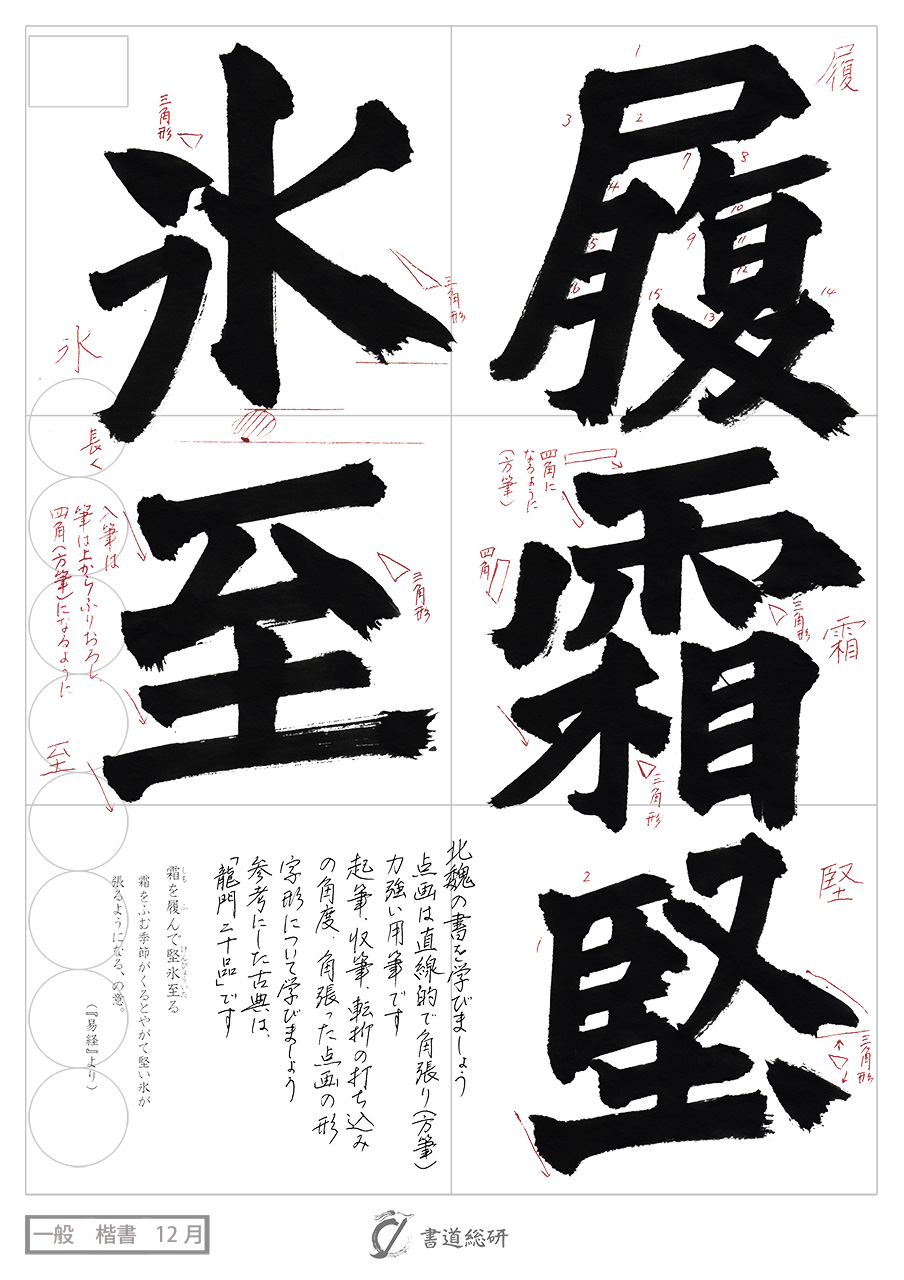 履霜堅
氷至
履
1
2
3
4
5
6
7
8
9
10
11
12
13
14
15
四角に
なるように
(方筆)
四角
三角形
霜
三角形
堅
1
2
三角形
三角形
三角形
氷
長く
三角形
入筆は
筆は上からふりおろし、
四角(方筆)になるように
至
北魏の書を学びましょう
点画は直線的で角張り(方筆)
力強い用筆です
起筆、収筆、転折の打ち込み
の角度、角張った点画の形
字形について学びましょう
参考にした古典は、
「龍門二十品」です
霜を履んで堅氷至る
しも ふ けんぴょういた
霜をふむ季節がくるとやがて堅い氷が
張るようになる、の意。
(『易経』より)
一般 楷書 12月
書道総研